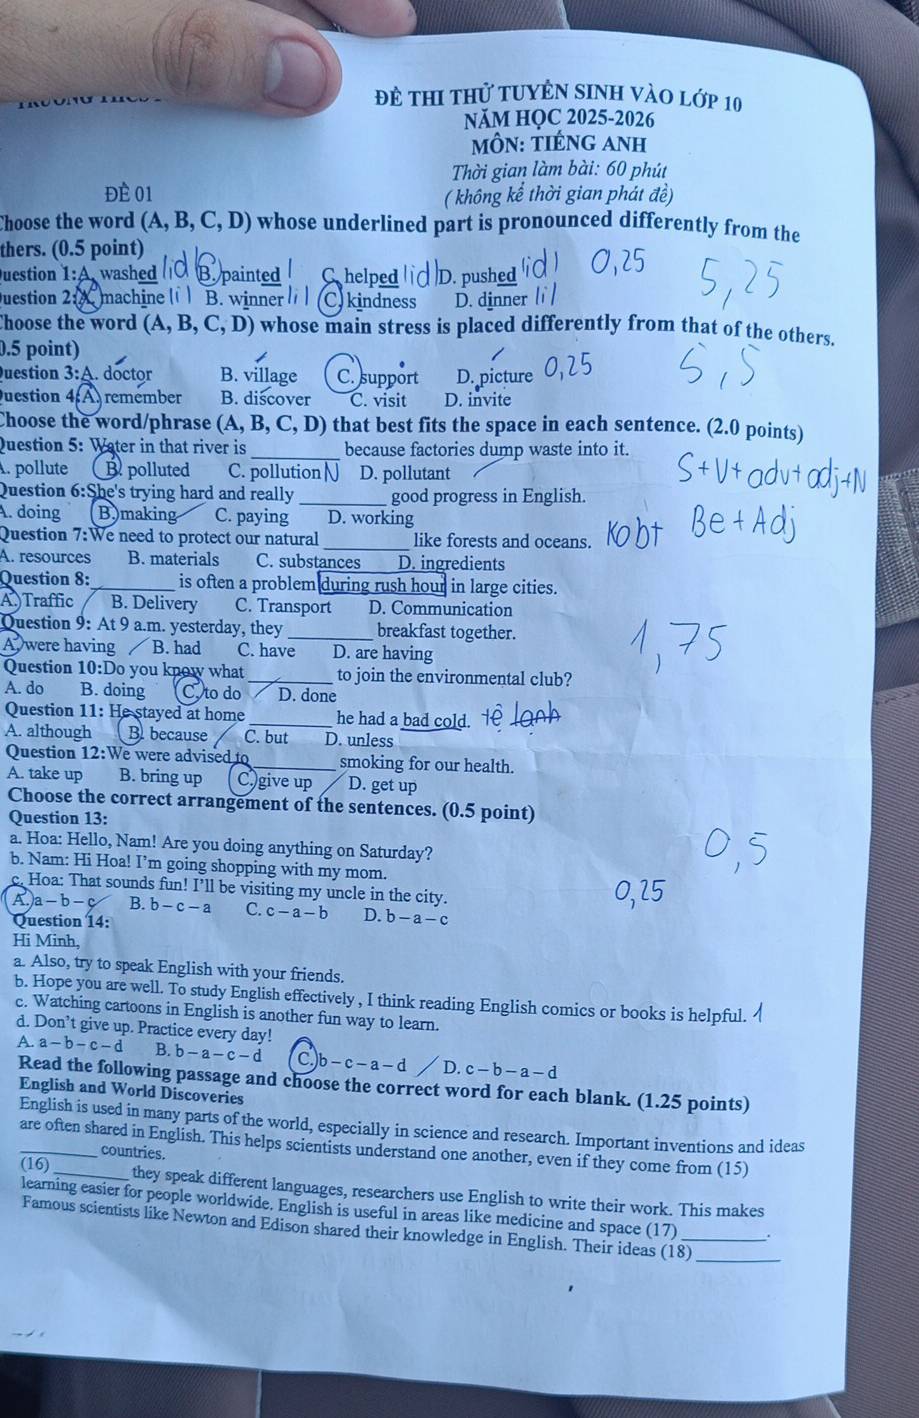 ĐỀ THI THỬ TUYỂN SINH VÀO LỚP 10
NĂM HỌC 2025-2026
MÔN: TIẾNG ANH
Thời gian làm bài: 60 phút
ĐỀ 01
( không kể thời gian phát đề)
Choose the word (A, B, C, D) whose underlined part is pronounced differently from the
thers. (0.5 point)
uestion 1:A. washed lid l B. painted l C. helped lid l D. pushed lid l 0,25
5,25
uestion 2: A. machine l i l B. winner l i l C. kindness D. dinner l i l
Choose the word (A, B, C, D) whose main stress is placed differently from that of the others.
0.5 point)
Question 3:A. doctor B. village C. support D. picture 0,25
5,5
Question 4:A. remember B. discover C. visit D. invite
Choose the word/phrase (A, B, C, D) that best fits the space in each sentence. (2.0 points)
Question 5: Water in that river is ________ because factories dump waste into it.
A. pollute B. polluted C. pollution N D. pollutant
S+V+adv+adj+N
Question 6:She's trying hard and really ________ good progress in English.
A. doing B. making C. paying D. working
Kobt Be + Adj
Question 7:We need to protect our natural ________ like forests and oceans.
A. resources B. materials C. substances D. ingredients
Question 8: ________ is often a problem during rush hour in large cities.
A. Traffic B. Delivery C. Transport D. Communication
Question 9: At 9 a.m. yesterday, they ________ breakfast together.
1,75
A. were having B. had C. have D. are having
Question 10:Do you know what ________ to join the environmental club?
A. do B. doing C. to do D. done
Question 11: He stayed at home ________ he had a bad cold. tệ lạnh
A. although B. because C. but D. unless
Question 12:We were advised to ________ smoking for our health.
A. take up B. bring up C. give up D. get up
Choose the correct arrangement of the sentences. (0.5 point)
Question 13:
0,5
a. Hoa: Hello, Nam! Are you doing anything on Saturday?
b. Nam: Hi Hoa! I'm going shopping with my mom.
c. Hoa: That sounds fun! I'll be visiting my uncle in the city.
0,25
A. a – b – c B. b – c – a C. c – a – b D. b – a – c
Question 14:
Hi Minh,
a. Also, try to speak English with your friends.
b. Hope you are well. To study English effectively , I think reading English comics or books is helpful. 1
c. Watching cartoons in English is another fun way to learn.
d. Don't give up. Practice every day!
A. a – b – c – d B. b – a – c – d C. b – c – a – d D. c – b – a – d
Read the following passage and choose the correct word for each blank. (1.25 points)
English and World Discoveries
English is used in many parts of the world, especially in science and research. Important inventions and ideas
are often shared in English. This helps scientists understand one another, even if they come from (15)
________ countries.
(16) ________ they speak different languages, researchers use English to write their work. This makes
learning easier for people worldwide. English is useful in areas like medicine and space (17) ________.
Famous scientists like Newton and Edison shared their knowledge in English. Their ideas (18) ________